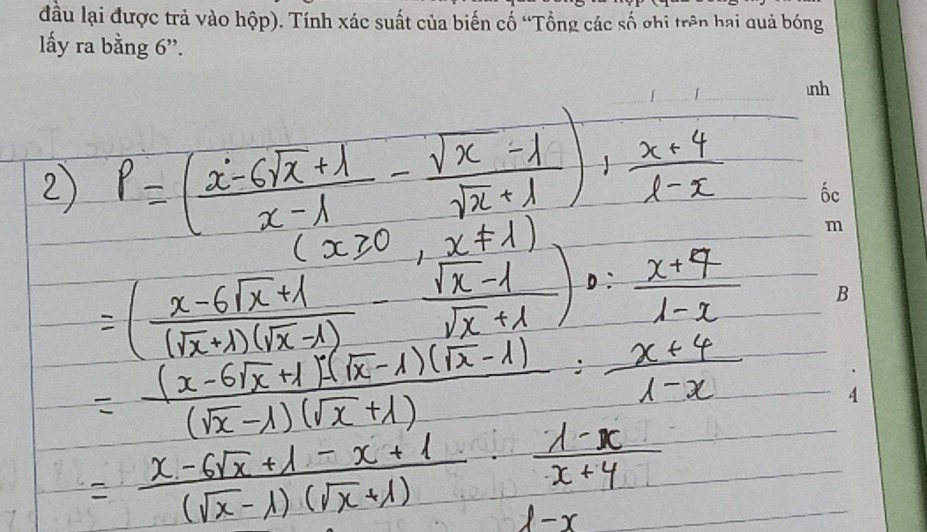 đầu lại được trả vào hộp). Tính xác suất của biến cố “Tổng các số ghi trên hai quả bóng
lấy ra bằng 6”.
2) P = ( (x-6√x+1)/(x-1) - (√x-1)/(√x+1) ) : (x+4)/(1-x)
(x≥0, x≠1)
= ( (x-6√x+1)/((√x+1)(√x-1)) - (√x-1)/(√x+1) ) : (x+4)/(1-x)
= ((x-6√x+1)-(√x-1)(√x-1))/((√x-1)(√x+1)) : (x+4)/(1-x)
= (x-6√x+1-x+1)/((√x-1)(√x+1)) . (1-x)/(x+4)
1-x
ốc
m
B